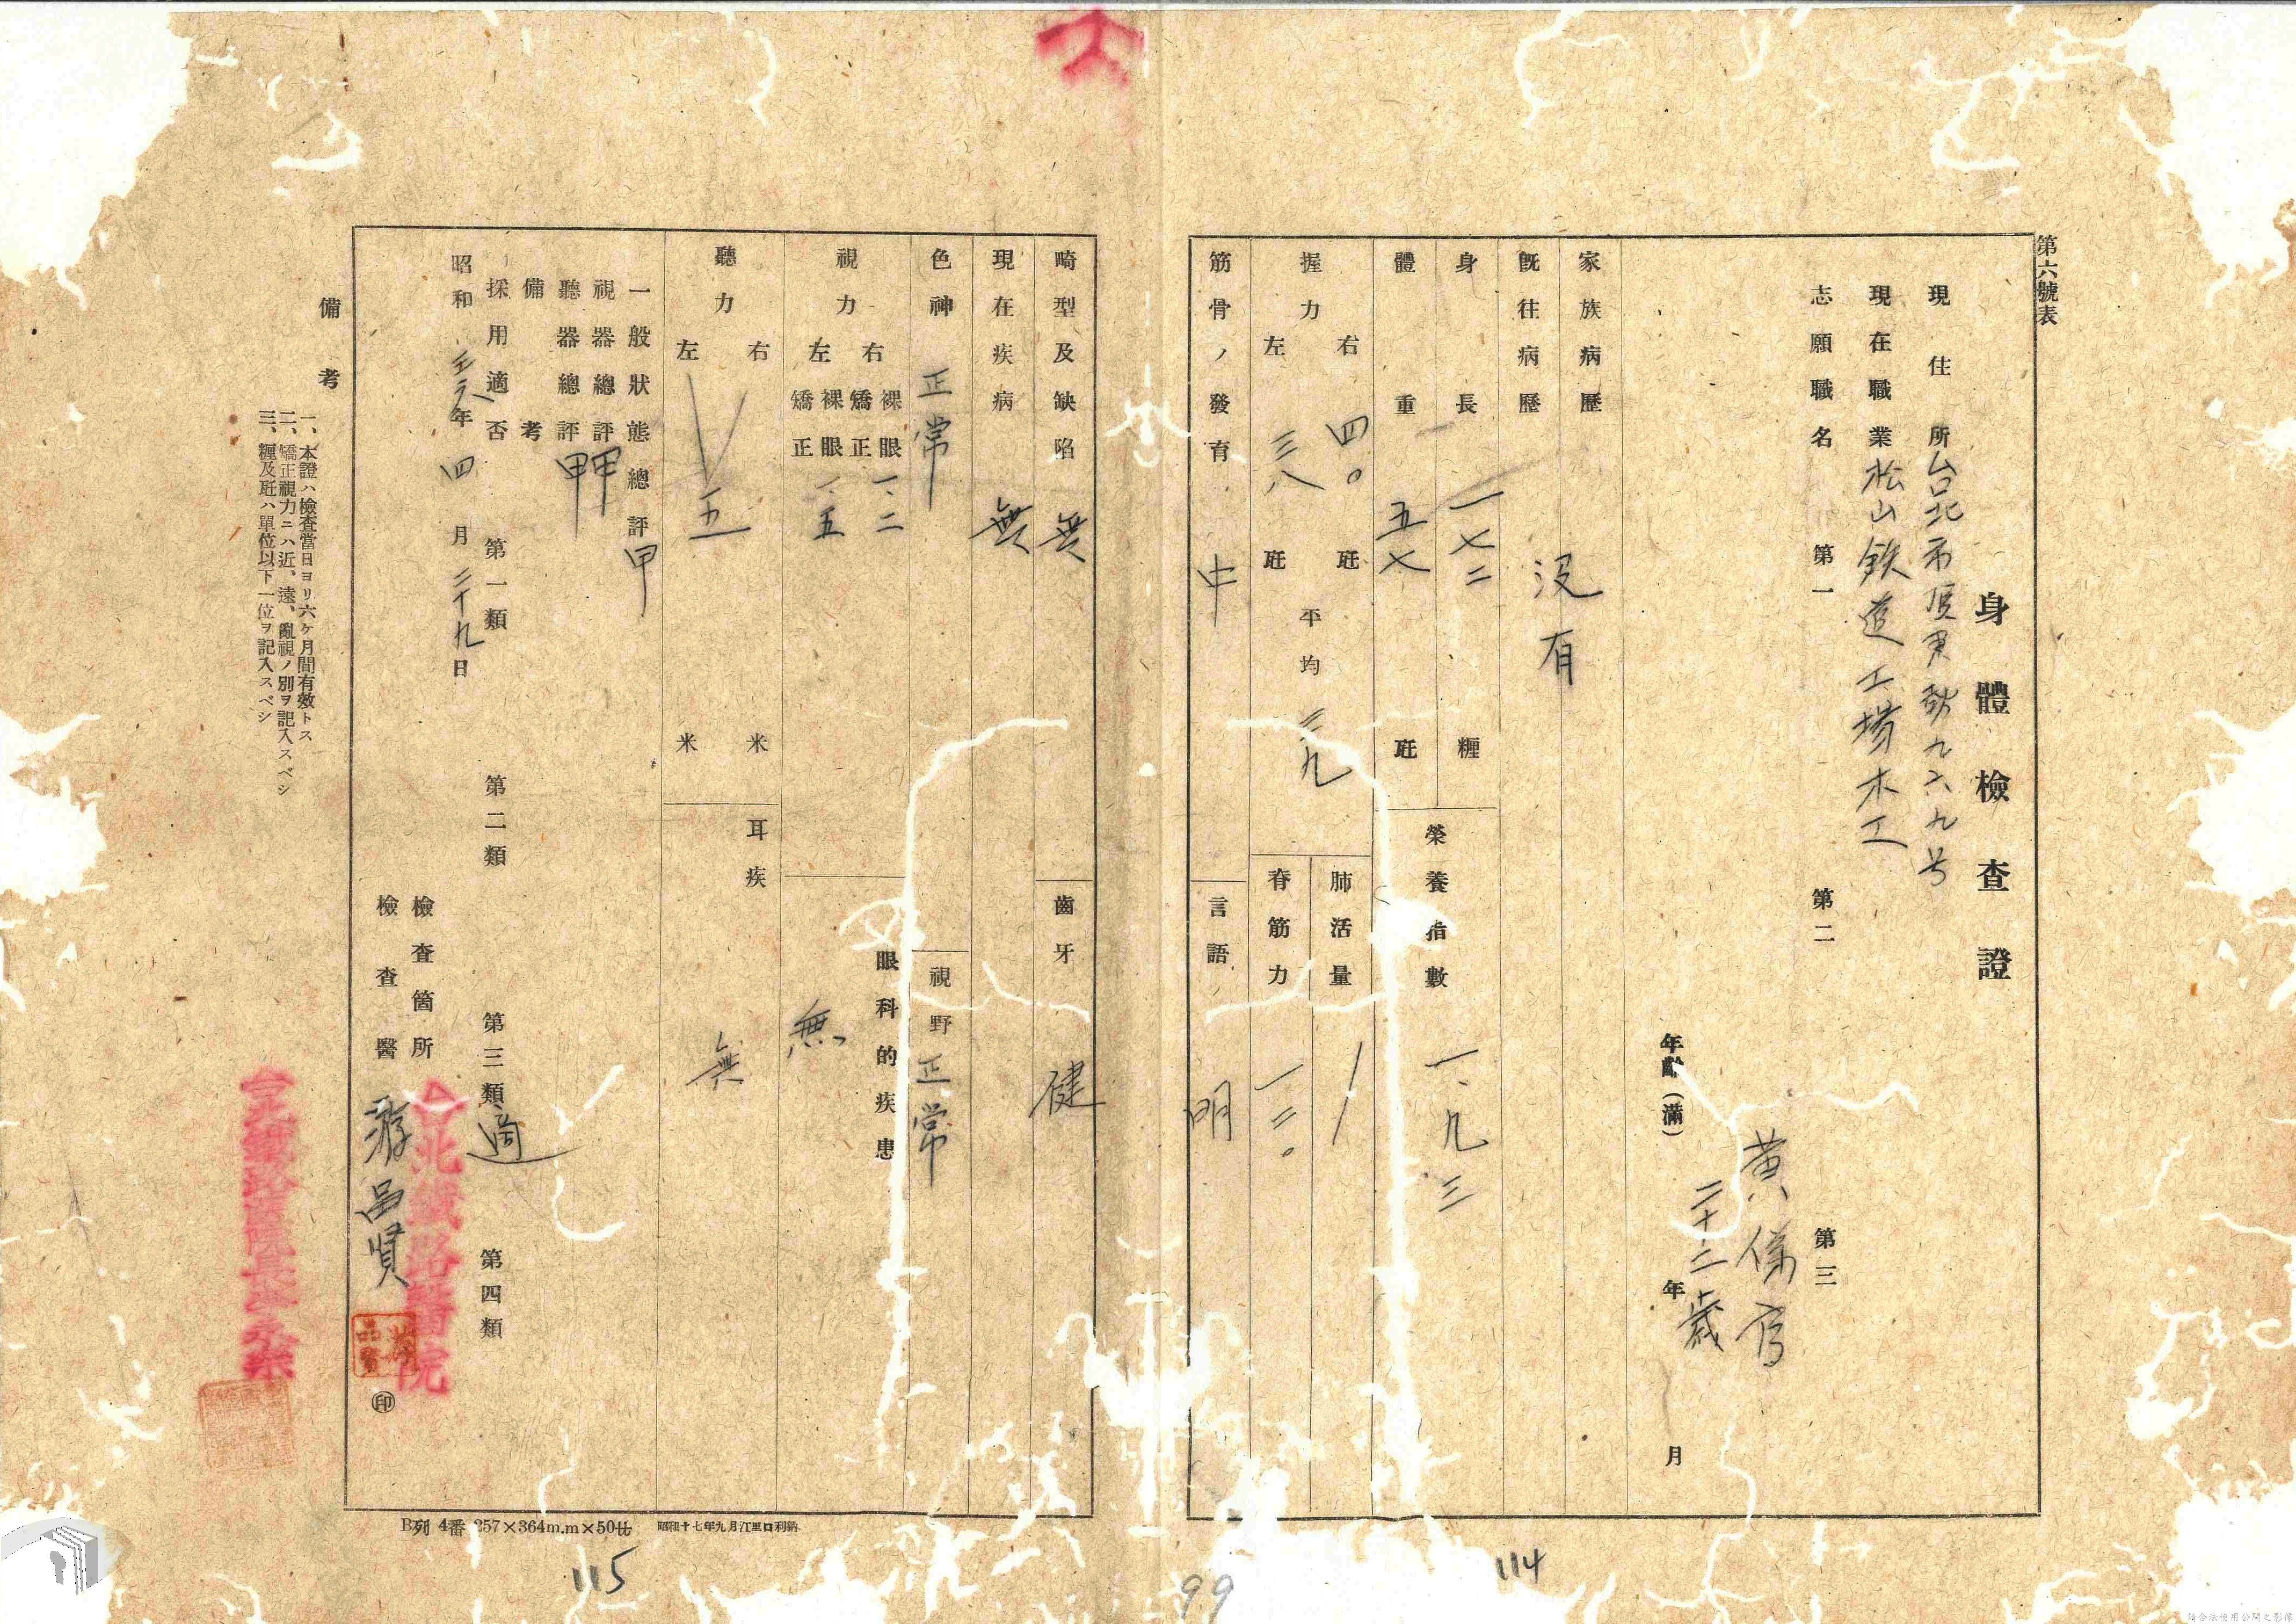 第六號表
身體檢查證
現住所 台北市頂東勢九六九号
現在職業 松山鉄道工場木工
志願職名 第一 第二 第三
黄 官
年齡(滿) 二十二歲 年 月
家族病歷
既往病歷 没有
身長 一七二 糎
體重 五七 瓩
榮養指數 一.九三
握力 右 四〇 瓩 左 三八 瓩 平均 三九
肺活量
脊筋力 一三〇
筋骨ノ發育 中
言語 明
畸型及缺陷 無
齒牙 健
現在疾病 無
色神 正常
視野 正常
視力 右 裸眼 一.二 矯正
左 裸眼 一.五 矯正
眼科的疾患 無
聽力 右 米 左 五 米
耳疾 無
一般狀態總評 甲
視器總評 甲
聽器總評 甲
備考
採用適否 第一類 第二類 第三類 第四類 適
昭和 年 四月二十九日
檢查箇所 台北鐵路醫院
檢查醫 游昌賢 ㊞
備考
一、本證ハ檢查當日ヨリ六ケ月間有效トス
二、矯正視力ニハ近、遠、亂視ノ別ヲ記入スベシ
三、糎及瓩ハ單位以下一位ヲ記入スベシ
B列 4番 257×364m.m×50
115
99
114
請合法使用公開之影像